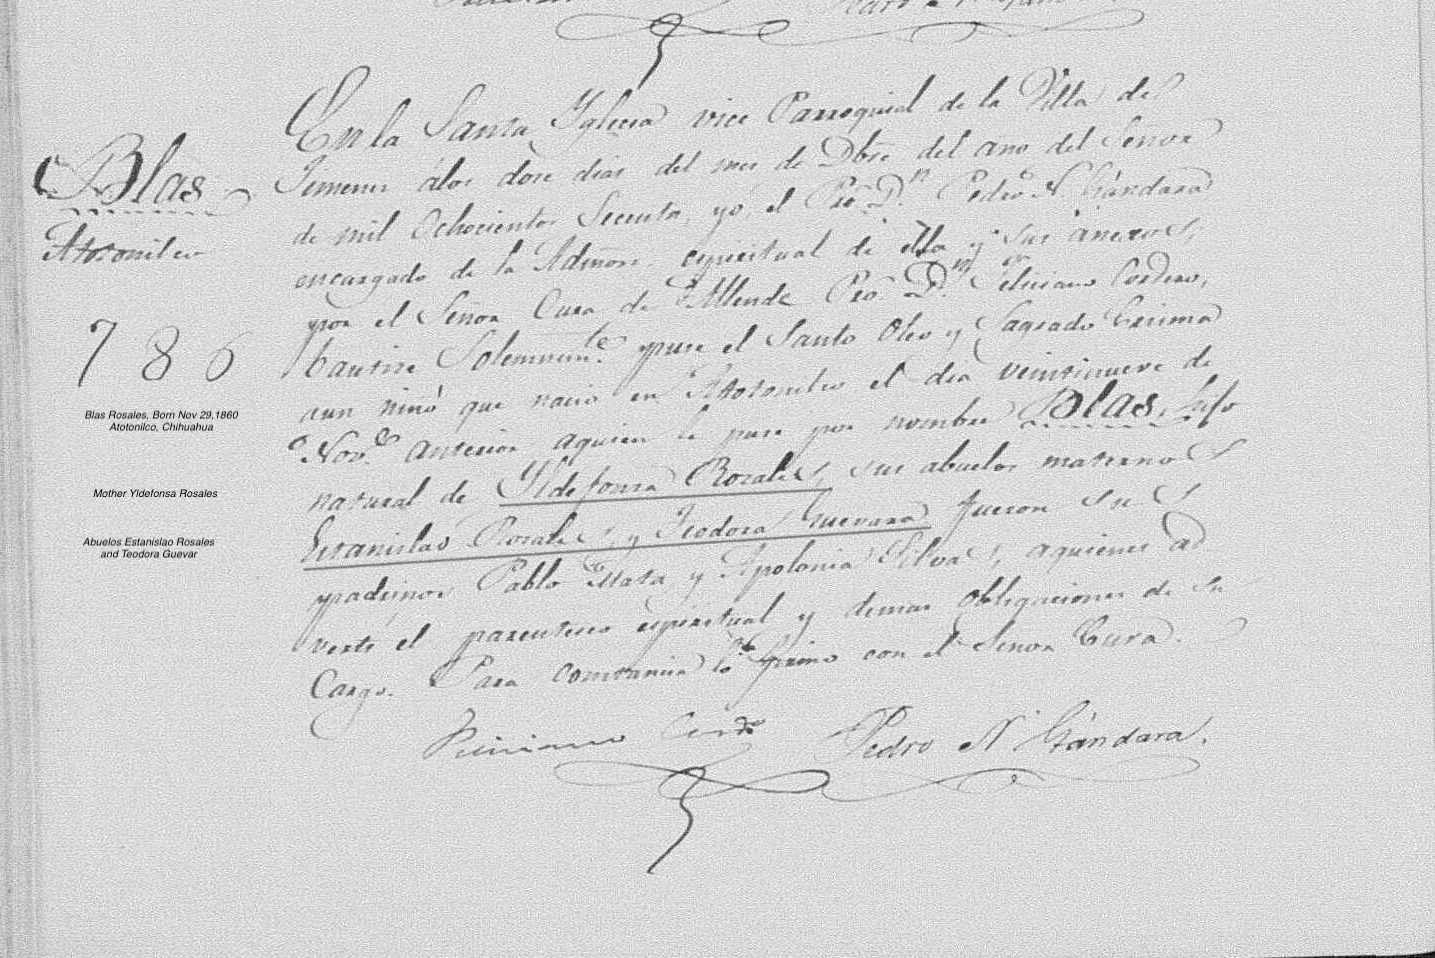 Pedro N. Gándara
En la Santa Yglecia vice Parroquial de la Villa de
Jimenes álos dose dias del mes de Dbre del ano del Señor
de mil Ochocientos Secenta, yo, el Pro. Dn. Pedro N. Gándara
encargado de la Admon. espiritual de ella y sus anexos,
por el Señor Cura de Allende Pro. Dn. Feliciano Cordero,
bautise Solemnemte. y puse el Santo Oleo y Sagrado Crisma
aun ninó que nació en Atotonilco el dia veintinueve de
Nove. anterior aquien le puse por nombre Blas, hijo
natural de Yldefonsa Rosales, sus abuelos maternos
Estanislao Rosales, y Teodora Guevara fueron sus
padrinos Pablo Mata y Apolonia Silva, aquienes ad
vertí el parentesco espiritual y demas obligaciones de su
Cargo. Para constancia lo firmo con el Señor Cura.
Feliciano Cordo
Pedro N Gándara.
Blas
Atotonilco
786
Blas Rosales, Born Nov 29,1860
Atotonilco, Chihuahua
Mother Yldefonsa Rosales
Abuelos Estanislao Rosales
and Teodora Guevar